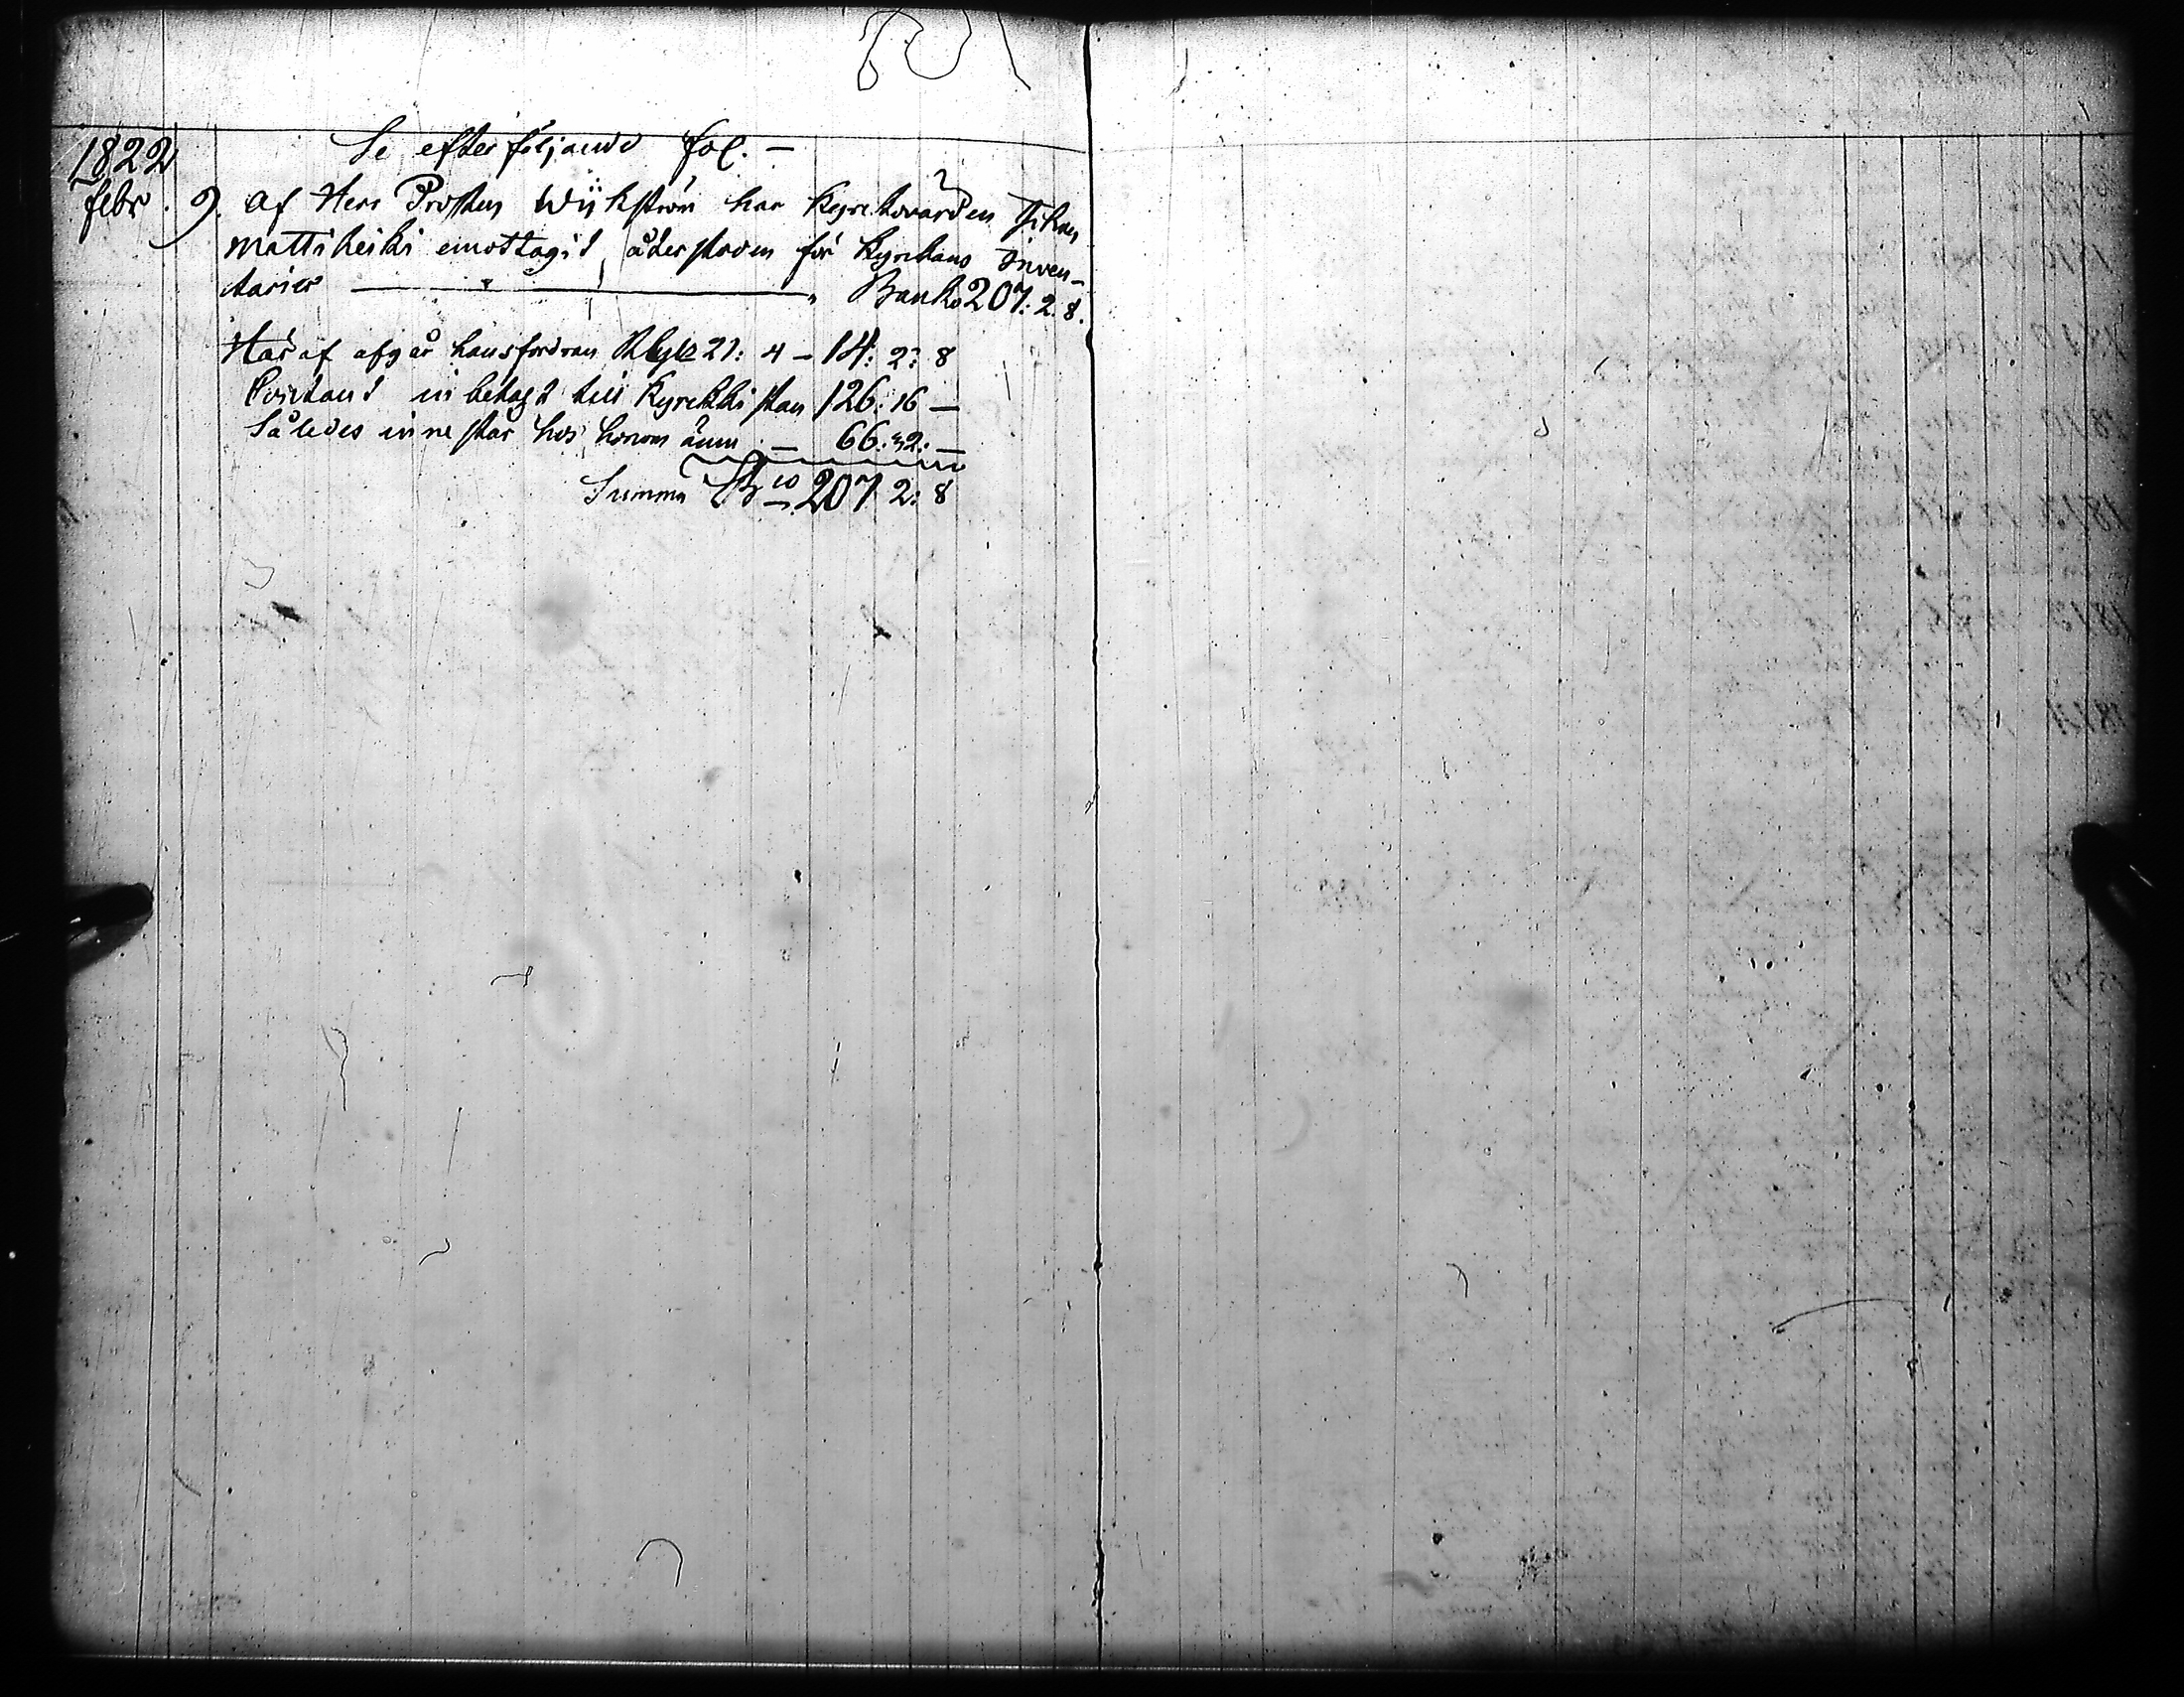 Se efterföljande fol. —
1822
febr. 9. Af Herr Prosten Wijkström har Kyrckovärden Johan
Mattiheiki emottagit, återstoden för Kyrckans Inven-
tarier — " — " Banko 207. 2. 8.
Här af afgår hans fordran 21: 4 — 14: 2: 8
Contant inbetagt till Kyrckkistan 126: 16 —
Således innestår hos honom ännu — 66: 32: —
Summa Bco 207. 2: 8